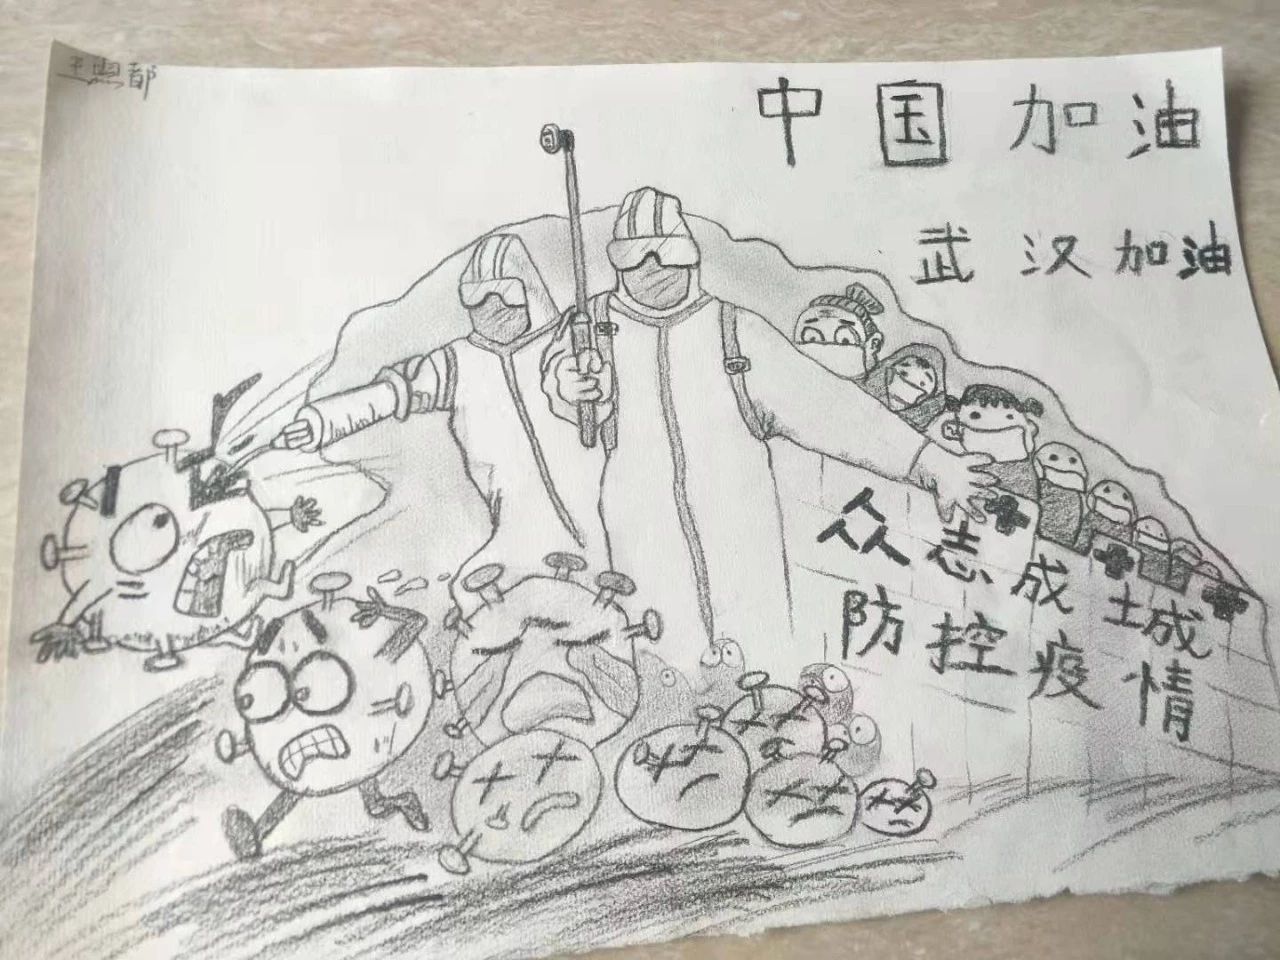 中国加油
武汉加油
众志成城
防控疫情